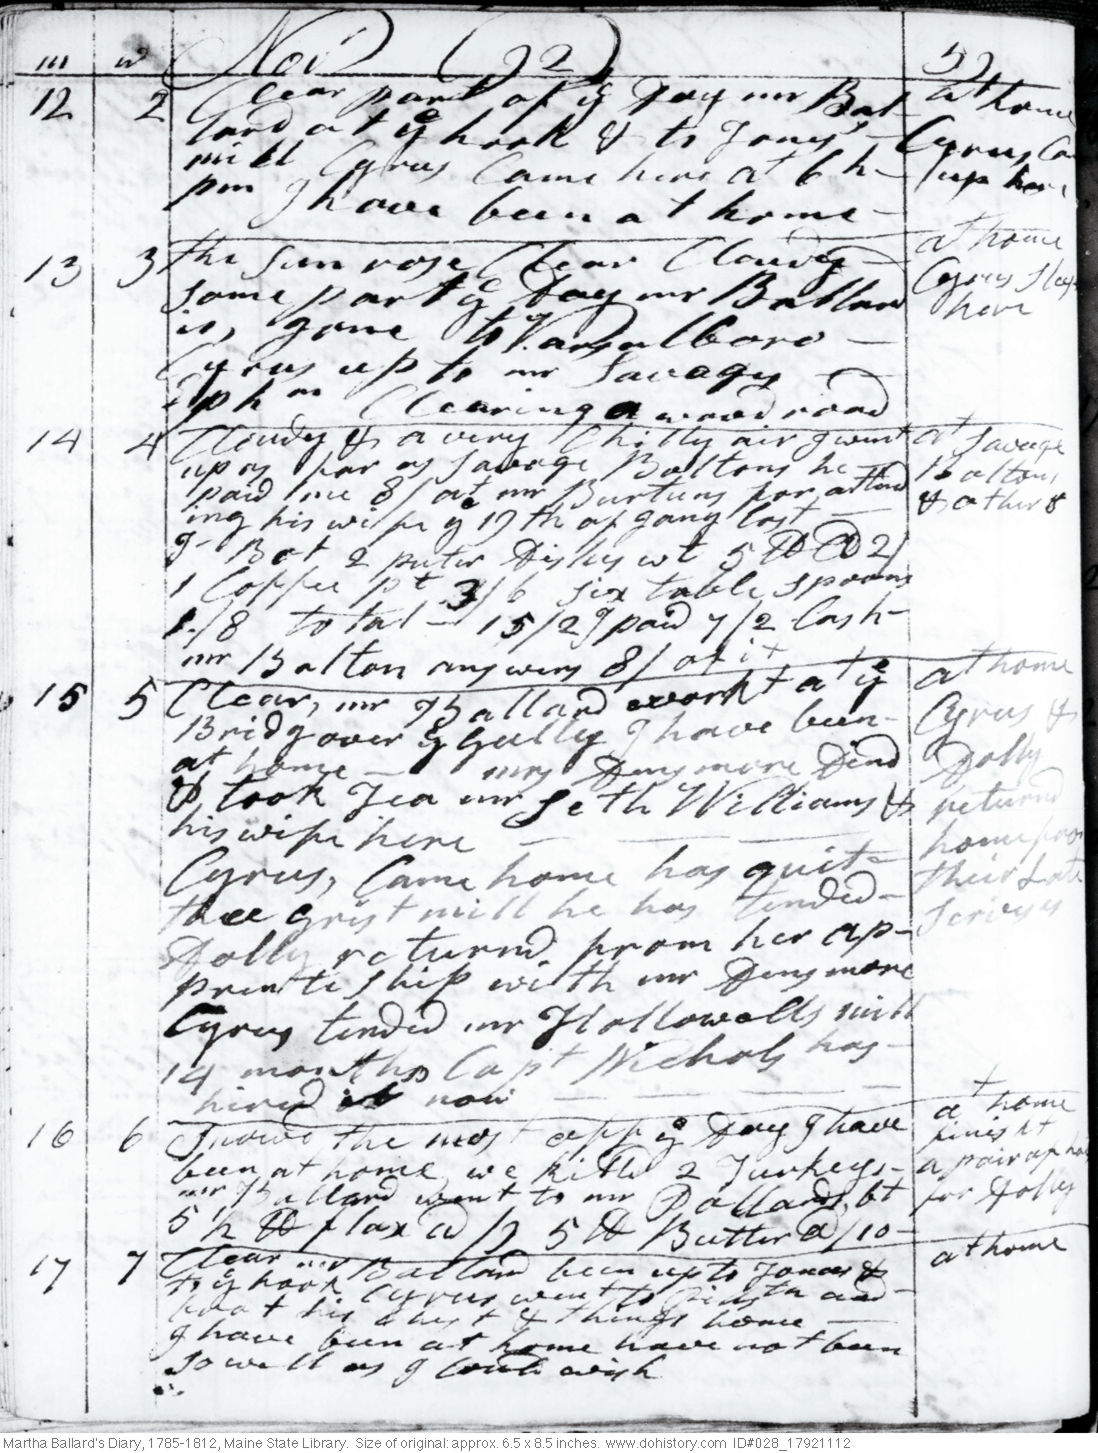 m w Novr (92) 92
12 2 Clear part of ye Day mr Bal- at home
lard at ye hook & to Jones' Cyrus Came
mill Cyrus Came here at 6 h- up here
pm I have been at home-
13 3 the sun rose Clear Cloudy- at home
some part ye Day mr Ballard Cyrus sleep
is, gone to Vassalboro - here
Cyrus up to mr Savages -
Eph m Clearing a wood road
14 4 Cloudy & a very Chilly air I went at Savage
up as far as Savage Boltons he Boltons
paid me 8/ at mr Burtuns for attend & other s
ing his wife ye 17th of Janry last -
I Bot 2 puter Dishes wt 5 lb @ 2/
1 Coffee pt 3/6 six table spoons
1/8 total - 15/2 I paid 7/2 Cash-
mr Bolton answers 8/ of it
15 5 Clear, mr Ballard workt at ye at home
Bridg over ye Gully I have been- Cyrus &
at home - mrs Densmore Dind Dolly
& took Tea mr Seth Williams & returnd
his wife here - - - home from
Cyrus, Came home has quit- their Late
thee grist mill he has tended- Servises
Dolly returnd from her ap-
prentiship with mr Densmore
Cyrus tended mr Hollowells mill
14 months Capt Nichols has-
hired it now - - - -
16 6 Snowd the most of ye Day I have at home
been at home, we killd 2 Turkeys- finisht
mr Ballard went to mr Pollards, bt a pair of hos
5 1/2 lb flax @ /7 5 lb Butter @ /10- for Dolly
17 7 Clear mr Ballard been up to Jones & at home
to ye hook Cyrus went to and-
brot his Chest & things home -
I have been at home have not been
so well as I Could wish
Martha Ballard's Diary, 1785-1812, Maine State Library. Size of original: approx. 6.5 x 8.5 inches. www.dohistory.com ID#028_17921112